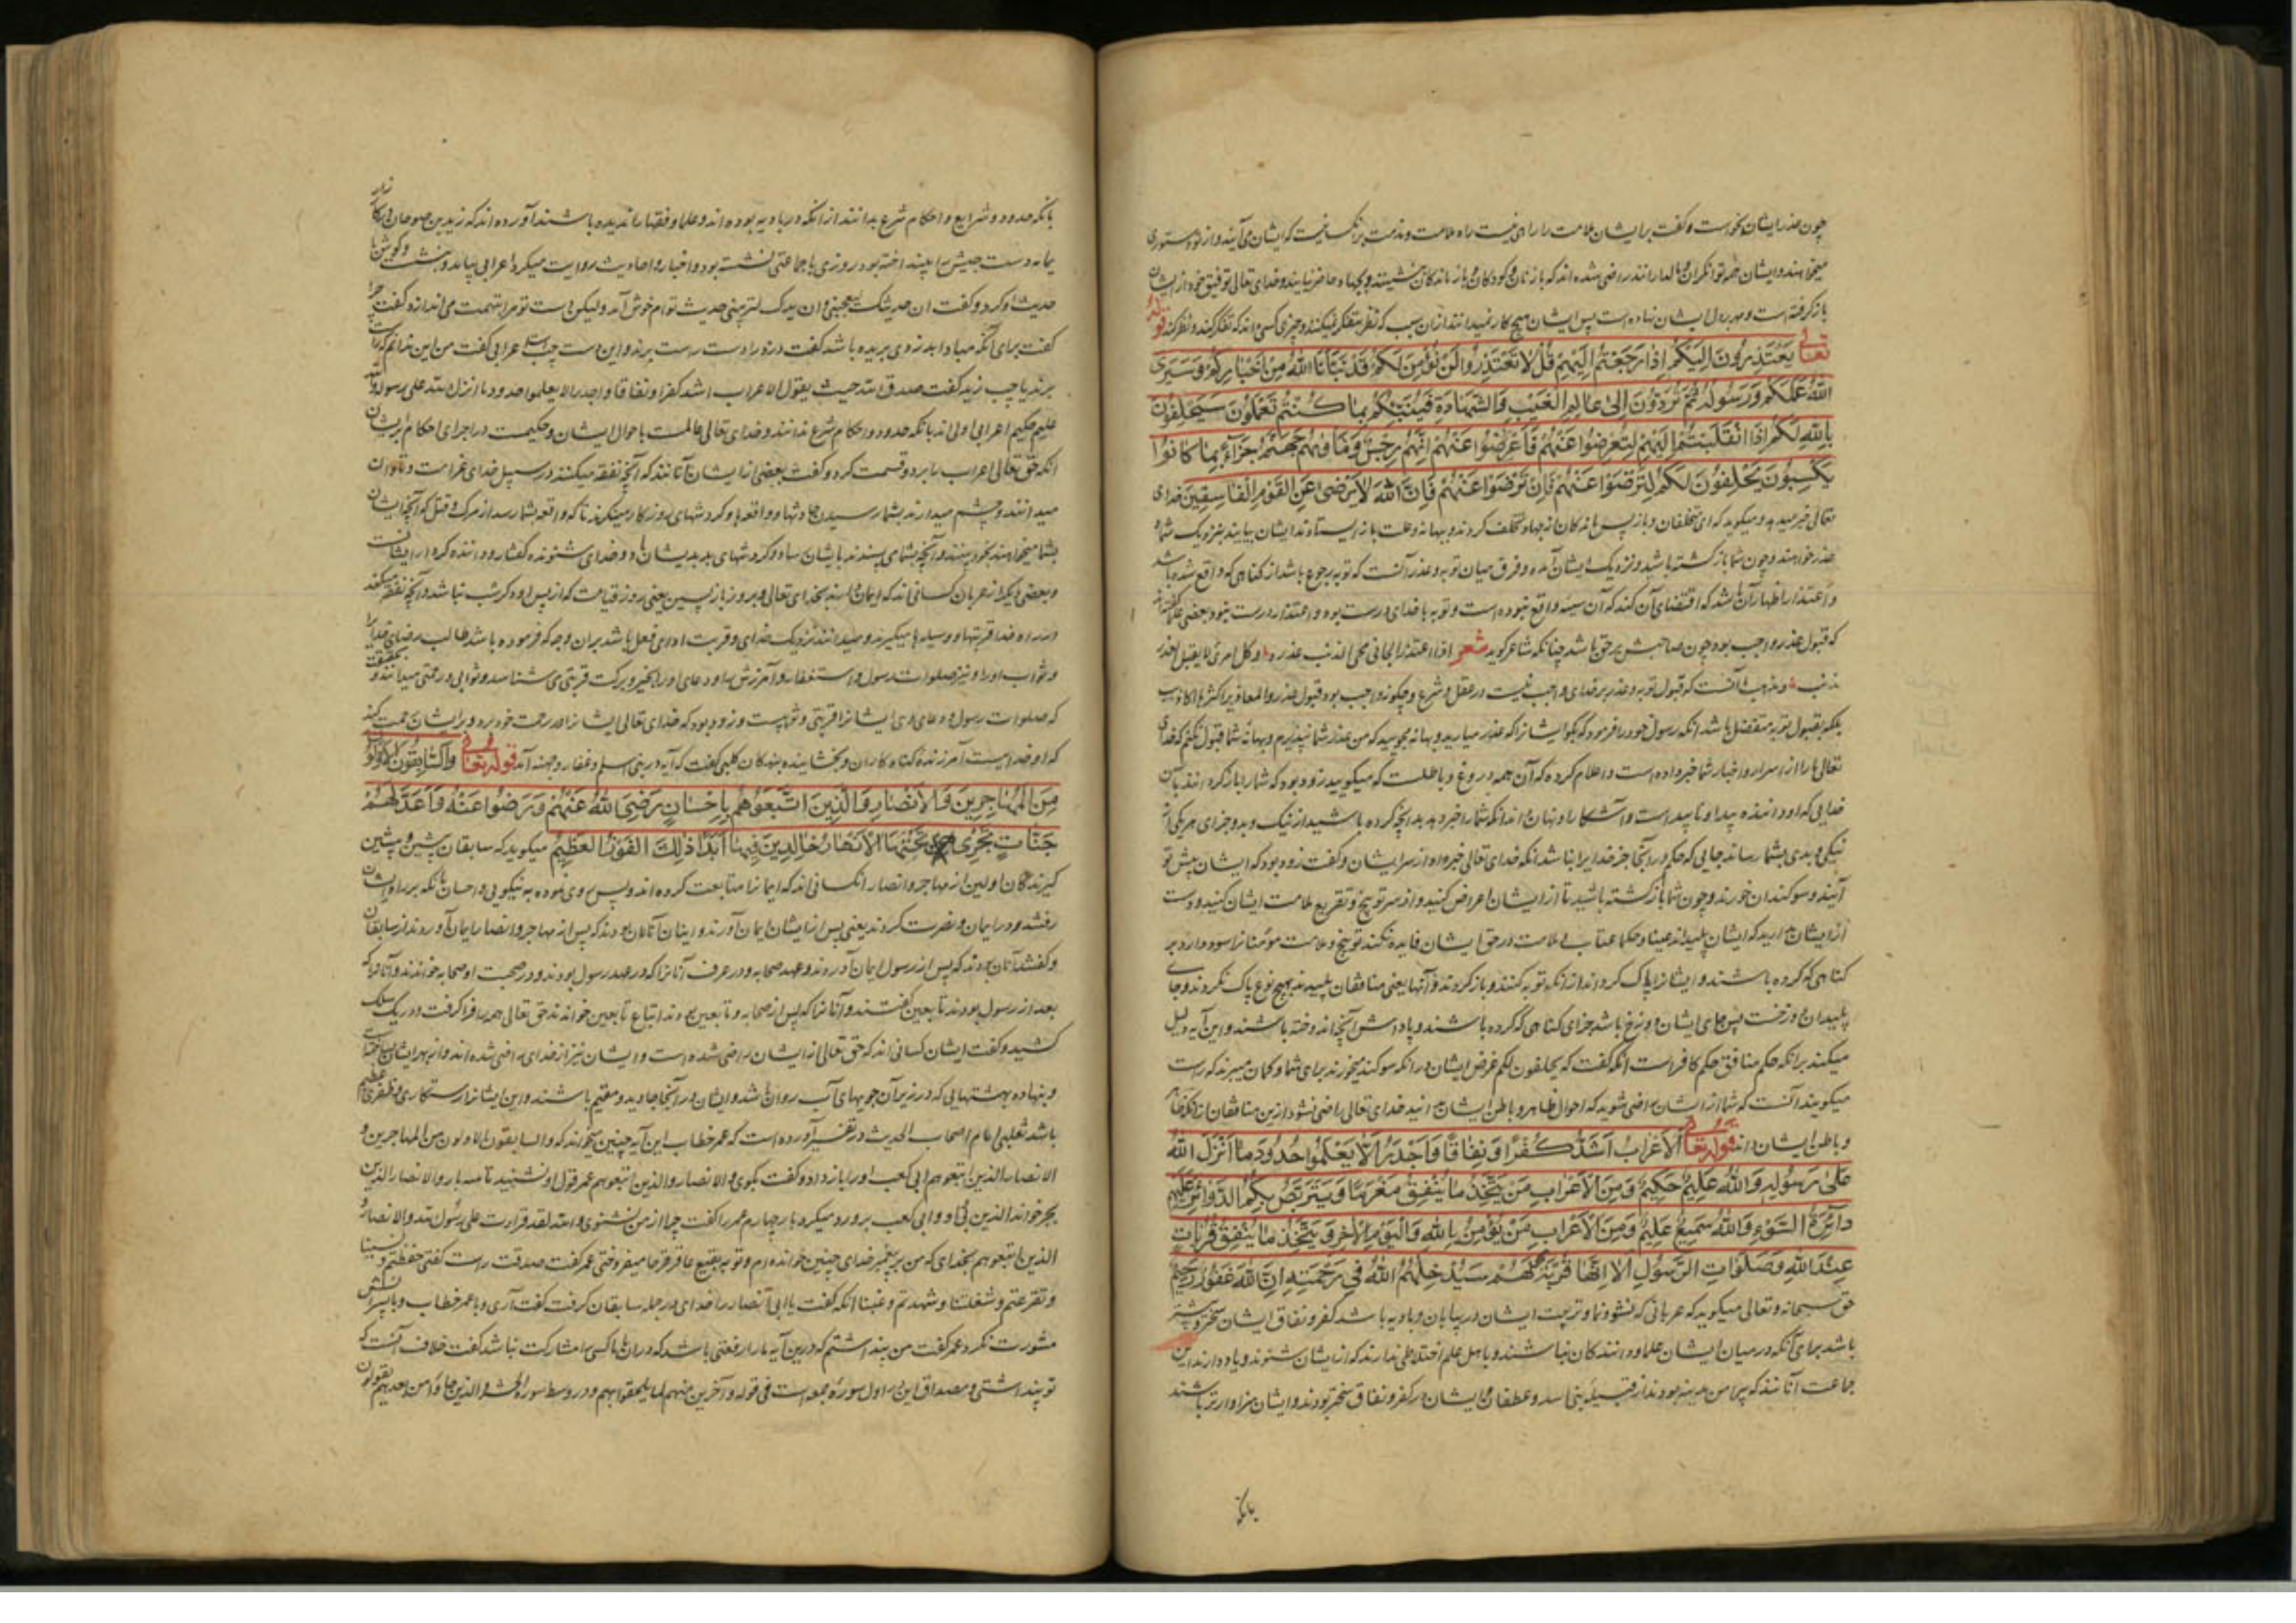 چون عذر ایشان بخواست و گفت بر ایشان ملامت را راهی نیست راه ملامت و مذمت بر آنکس نیست که ایشان می آیند و از تو دستوری
میخواهند و ایشان توانکران و مالدارانند راضی شده اند که با زنان و کودکان و بازماندکان بنشینند و بجهاد حاضر نیایند و خدای تعالی توفیق خود از ایشان
بازگرفته است و مهر بر دل ایشان نهاده است پس ایشان هیچ کار نمیدانند از آن سبب که نظر و تفکر نمیکنند و چیزی کسی داند که تفکر کند و نظر کند قوله
تعالی يَعْتَذِرُونَ اِلَيْكُمْ اِذَا رَجَعْتُمْ اِلَيْهِمْ قُلْ لَا تَعْتَذِرُوا لَنْ نُؤْمِنَ لَكُمْ قَدْ نَبَّاَنَا اللهُ مِنْ اَخْبَارِكُمْ وَسَيَرَى
اللهُ عَمَلَكُمْ وَرَسُولُهُ ثُمَّ تُرَدُّونَ اِلَى عَالِمِ الْغَيْبِ وَالشَّهَادَةِ فَيُنَبِّئُكُمْ بِمَا كُنْتُمْ تَعْمَلُونَ سَيَحْلِفُونَ
بِاللهِ لَكُمْ اِذَا انْقَلَبْتُمْ اِلَيْهِمْ لِتُعْرِضُوا عَنْهُمْ فَاَعْرِضُوا عَنْهُمْ اِنَّهُمْ رِجْسٌ وَمَاْوٰىهُمْ جَهَنَّمُ جَزَاءً بِمَا كَانُوا
يَكْسِبُونَ يَحْلِفُونَ لَكُمْ لِتَرْضَوْا عَنْهُمْ فَاِنْ تَرْضَوْا عَنْهُمْ فَاِنَّ اللهَ لَا يَرْضَى عَنِ الْقَوْمِ الْفَاسِقِينَ خدای
تعالی خبر میدهد و میکوید که ای متخلفان و باز پس ماندکان از جهاد تخلف کردند و بهانه و علت باز ایستادند ایشان بیایند بنزدیک شما و
عذر خواهند و چون شما بازکشته باشید و نزدیک ایشان آمده و فرق میان توبه و عذر آنست که توبه رجوع باشد از کناهی که واقع شده باشد
و اعتذار اظهار آن باشد که اقتضای آن کند که آن سیئه واقع نبوده است و توبه با خدای درست بود و اعتذار درست نبود بعضی علما گفته اند
که قبول عذر واجب بود چون صاحبش بر حق باشد چنانکه شاعر کوید شعر اذا اعتذر الجانی محی الذنب عذره و کل امری لا یقبل العذر
مذنب و مذهب آنست که قبول توبه و عذر بر خدای واجب نیست در عقل و شرع و چکونه واجب بود قبول عذر و المعاذیر اکثرها اکاذیب
بلکه بقبول توبه متفضل باشد انکه رسول خود را فرمود که بگو ایشانرا که عذر میارید و بهانه مجویید که من عذر شما نپذیرم و بهانه شما قبول نکنم که خدای
تعالی ما را از اسرار و اخبار شما خبر داده است و اعلام کرده که آن همه دروغ و باطلست که میکویید زود بود که شما را باز کردانند بآن
خدایی که او داننده پیدا و ناپیداست و آشکارا و نهان داند انکه شما را خبر دهد بدانچه کرده باشید از نیک و بد و جزای هر یکی از
نیکی و بدی بشما رساند جایی که حکم در آنجا جز خدایرا نباشد انکه خدای تعالی خبر داد از سر ایشان و گفت زود بود که ایشان پیش تو
آیند و سوکندان خورند و چون شما بازکشته باشید تا از ایشان اعراض کنید و از سر توبیخ و تقریع ملامت ایشان کنید و دست
از ایشان بدارید که ایشان پلیدند عینا و حکما عتاب و ملامت در حق ایشان فایده نکند توبیخ و ملامت مؤمنانرا سود دارد بر
کناهی که کرده باشند و ایشانرا پاک کرداند از آنکه توبه کنند و باز کردند و آنها یعنی منافقان پلیدند بهیچ نوع پاک نکردند و جای
پلیدان دوزخست پس جای ایشان دوزخ باشد جزای کناهی که کرده باشند و پاداش آنچه اندوخته باشند و این آیه دلیل
میکند برانکه حکم منافق حکم کافر است انکه گفت که یحلفون لکم غرض ایشان در انکه سوکند میخورند برای شما و کمان میبرند که راست
میکویند آنست که شما از ایشان راضی شوید که احوال ظاهر و باطن ایشان ندانید خدای تعالی راضی نشود ازین منافقان زانکه ظاهر
و باطن ایشان داند قوله تعالی اَلْاَعْرَابُ اَشَدُّ كُفْرًا وَنِفَاقًا وَاَجْدَرُ اَلَّا يَعْلَمُوا حُدُودَ مَا اَنْزَلَ اللهُ
عَلَى رَسُولِهِ وَاللهُ عَلِيمٌ حَكِيمٌ وَمِنَ الْاَعْرَابِ مَنْ يَتَّخِذُ مَا يُنْفِقُ مَغْرَمًا وَيَتَرَبَّصُ بِكُمُ الدَّوَائِرَ عَلَيْهِمْ
دَائِرَةُ السَّوْءِ وَاللهُ سَمِيعٌ عَلِيمٌ وَمِنَ الْاَعْرَابِ مَنْ يُؤْمِنُ بِاللهِ وَالْيَوْمِ الْآخِرِ وَيَتَّخِذُ مَا يُنْفِقُ قُرُبَاتٍ
عِنْدَ اللهِ وَصَلَوَاتِ الرَّسُولِ اَلَا اِنَّهَا قُرْبَةٌ لَهُمْ سَيُدْخِلُهُمُ اللهُ فِي رَحْمَتِهِ اِنَّ اللهَ غَفُورٌ رَحِيمٌ
حق سبحانه و تعالی میکوید که عربانی که نشو و نما و تربیت ایشان در بیابان و بادیه باشد کفر و نفاق ایشان سختر و بیشتر
باشد برای آنکه در میان ایشان علما و دانندکان نباشند و با اهل علم اختلاطی ندارند که از ایشان شنوند و یاد دارند این
جماعت آنانند که پیرامن مدینه بودند از قبیله بنی اسد و غطفان و ایشان در کفر و نفاق سختر بودند و ایشان سزاوارتر باشند
بانکه
بانکه حدود و شرایع و احکام شرع ندانند از آنکه در بادیه بوده اند و علما و فقها را ندیده باشند آورده اند که زید بن صوحان را
یمامه دست جیش انداخته بود روزی با جماعتی نشسته بود و اخبار و احادیث روایت میکرد اعرابی بیامد و بنشست و کوش با
حدیث او کرد و گفت ان حدیثک لیعجبنی و ان یدک لتریبنی حدیث تو ام خوش آمد ولیکن دست تو مرا بتهمت می اندازد گفت چرا
گفت برای آنکه مبادا بدزدی بریده باشد گفت دزد را دست راست برند و این دست چپ است اعرابی گفت من این ندانم که راست
برند یا چپ زید گفت صدق الله حیث یقول الاعراب اشد کفرا و نفاقا و اجدر الا یعلموا حدود ما انزل الله علی رسوله والله
علیم حکیم اعرابی اولی اند بانکه حدود و احکام شرع ندانند و خدای تعالی عالمست باحوال ایشان و حکیمست در اجرای احکام بر ایشان
انکه حق تعالی اعراب را برد و قسمت کرد و گفت بعضی از ایشان آنانند که آنچه نفقه میکنند در سبیل خدای غرامت و تاوان
میدانند و چشم میدارند بشما رسیدن حادثها و واقعها و کردشهای روزکار مینکرند تا که واقعه بشما رسد از مرک و قتل که آنچه ایشان
بشما میخواهند بخود بینند و آنچه بشما می پسندند بایشان رساد و کردشهای بد بدیشان باد و خدای شنونده گفتار و داننده کردار ایشانست
و بعضی دیکر از عربان کسانی اند که ایمان دارند بخدای تعالی و بروز بازپسین یعنی روز قیامت که از پس او دکر شب نباشد و آنچه نفقه میکنند
در راه خدا قربتها و وسیلها میکیرند و میدانند نزدیک خدای و قربت ادای فعل باشد بران وجه که فرموده باشد طالب رضای خدا را
و ثواب او را و نیز صلوات رسول و استغفار و آمرزش او و دعای او را بخیر و برکت قربتی می شناسد و ثوابی و رحمتی میدانند و بحقیقت
که صلوات رسول و دعای وی ایشانرا قربتی و ثوابیست و زود بود که خدای تعالی ایشانرا در رحمت خود برد و بر ایشان رحمت کند
که او خدا ییست آمرزنده گناه کاران و بخشاینده بندکان کلبی گفت که آیه در بنی اسلم و غفار و جهینه آمد قوله تعالی وَالسَّابِقُونَ الْاَوَّلُونَ
مِنَ الْمُهَاجِرِينَ وَالْاَنْصَارِ وَالَّذِينَ اتَّبَعُوهُمْ بِاِحْسَانٍ رَضِيَ اللهُ عَنْهُمْ وَرَضُوا عَنْهُ وَاَعَدَّ لَهُمْ
جَنَّاتٍ تَجْرِي تَحْتَهَا الْاَنْهَارُ خَالِدِينَ فِيهَا اَبَدًا ذٰلِكَ الْفَوْزُ الْعَظِيمُ میکوید که سابقان پیشین و پیشی
کیرندکان اولین از مهاجر و انصار آنکسانی اند که ایمانرا متابعت کرده اند و پس روی نموده به نیکویی و احسان بانکه بر راه ایشان
رفتند و در ایمان و نصرت کردند یعنی پس از ایشان ایمان آوردند و اینان آنان بودند که پس از مهاجر و انصار ایمان آوردند از سابقان
و گفتند آنان بودند که پس از رسول ایمان آوردند و عهد صحابه و در عرف آنانرا که در عهد رسول بودند و در صحبت او صحابه خوانند و آنانرا که
بعد از رسول بودند تابعین گفتند و آنانرا که پس از صحابه و تابعین بودند اتباع تابعین خوانند حق تعالی همه را فرا گرفت و در یک سلک
کشید و گفت ایشان کسانی اند که حق تعالی از ایشان راضی شده است و ایشان نیز از خدای راضی شده اند و از بهر ایشان ساخته است
و بنهاده بهشتهایی که در زیر آن جویهای آب روان باشد و ایشان در آنجا جاوید و مقیم باشند و این ایشانرا رستکاری و ظفری عظیم
باشد ثعلبی امام اصحاب الحدیث در تفسیر آورده است که عمر خطاب این آیه چنین میخواند که والسابقون الاولون من المهاجرین و
الانصار الذین اتبعوهم ابی کعب او را باز داد و گفت بگوی والانصار والذین اتبعوهم عمر قول او نشنید تا سه بار والانصار الذین
بجر خواند الذین بی واو و ابی کعب برو رد میکرد بار چهارم عمر را گفت چرا از من نشنوی والله لقد قرات علی رسول الله والانصار و
الذین اتبعوهم بخدای که من بر پیغمبر خدای چنین خوانده ام و تو به بقیع ما قرقرها میفروختی عمر گفت صدقت راست گفتی حفظتم و نسینا
و تفرغتم و شغلنا و شهدتم و غبنا انکه گفت یا ابی انصار را خدای در جمله سابقان گرفت گفت آری و با عمر خطاب و با پسرانش
مشورت نکرد عمر گفت من پنداشتم که درین آیه ما را رفعتی باشد که در آن با ما کسی را مشارکت نباشد گفت خلاف آنست که
تو پنداشتی و مصداق این در اول سوره جمعه است فی قوله و آخرین منهم لما یلحقوا بهم و در وسط سوره الحشر والذین جاؤا من بعدهم یقولون